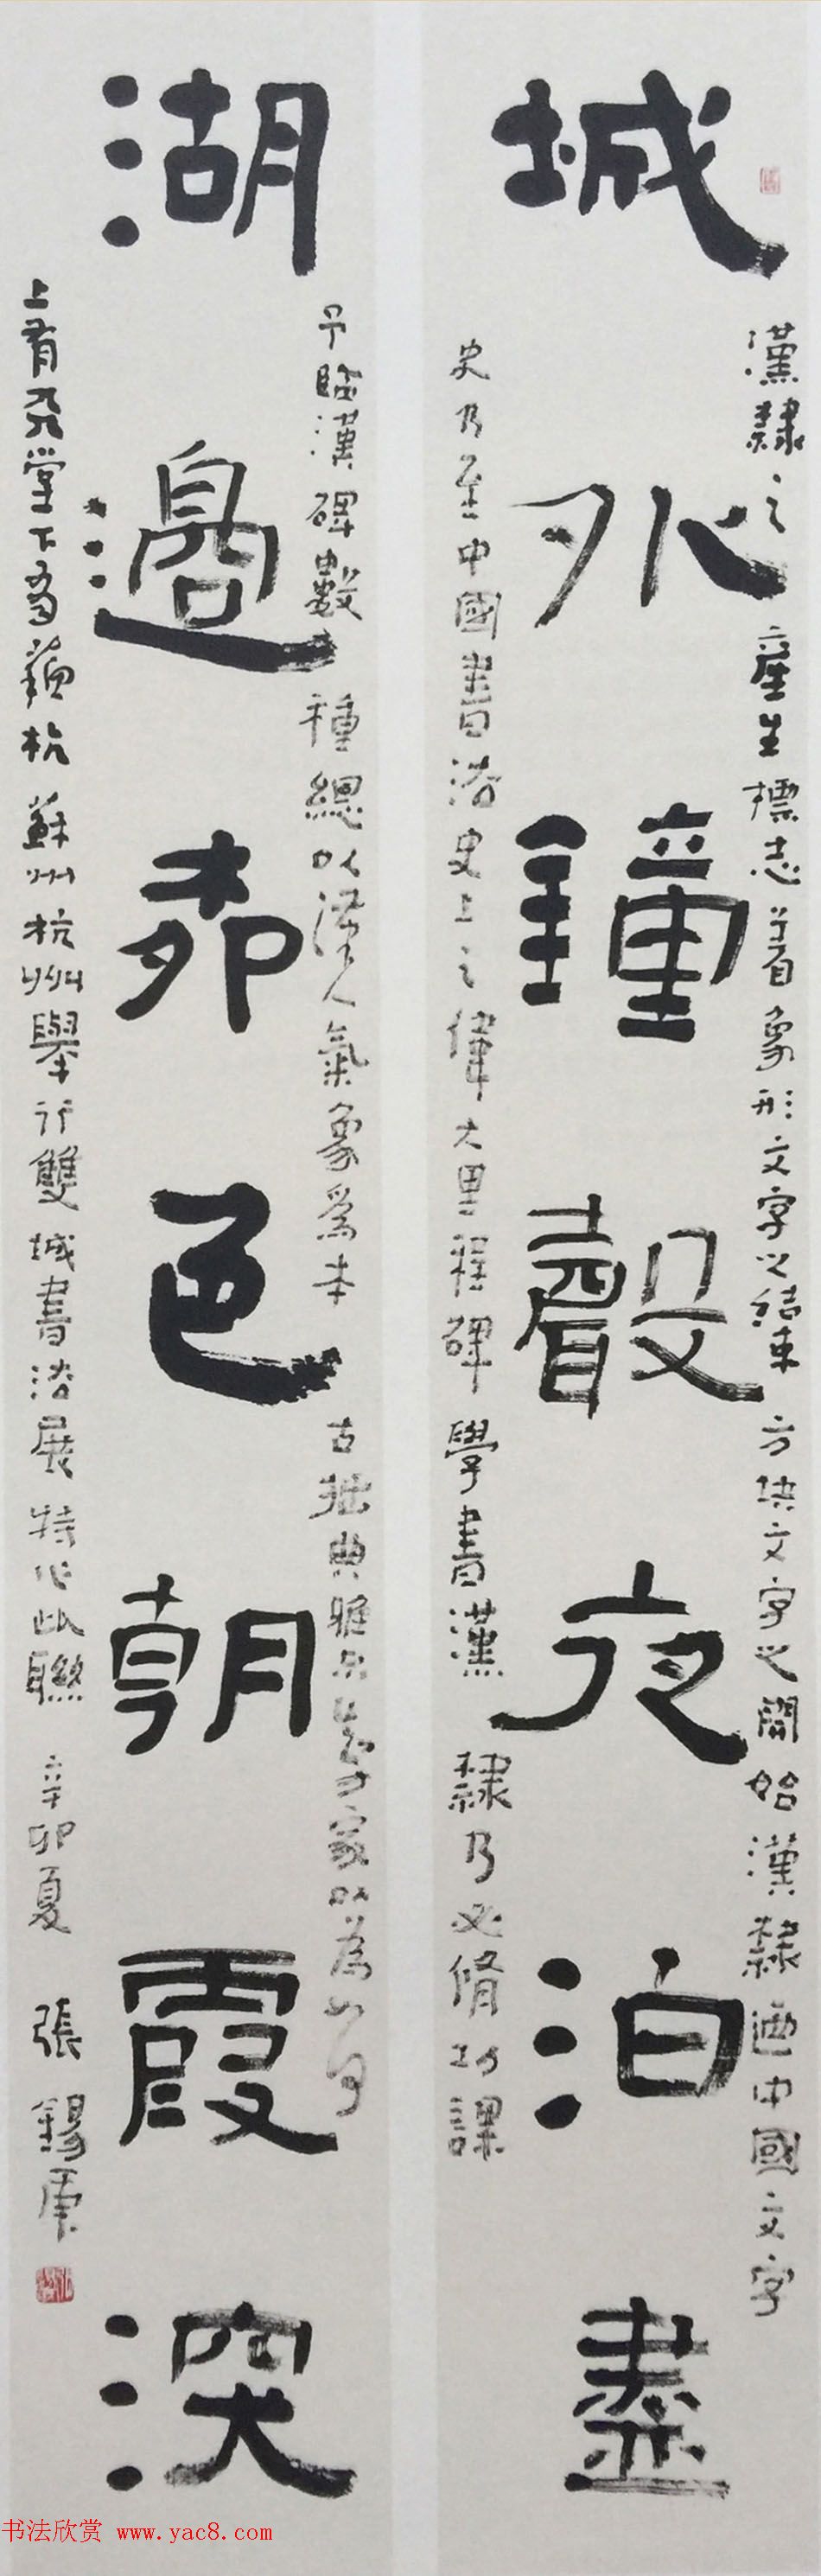 漢隸之產生標志着象形文字之結束方块文字之開始漢隸迺中國文字
城外鐘聲夜泊盡
史乃至中國書法史上之偉大里程碑學書漢隸乃必修功課
予臨漢碑數種總以漢人氣象爲本古拙典雅不知方家以為如何
湖邊柳色朝霞深
上有天堂下有蘇杭蘇州杭州舉行雙城書法展特作此聯辛卯夏張錫庚
书法欣赏 www.yac8.com